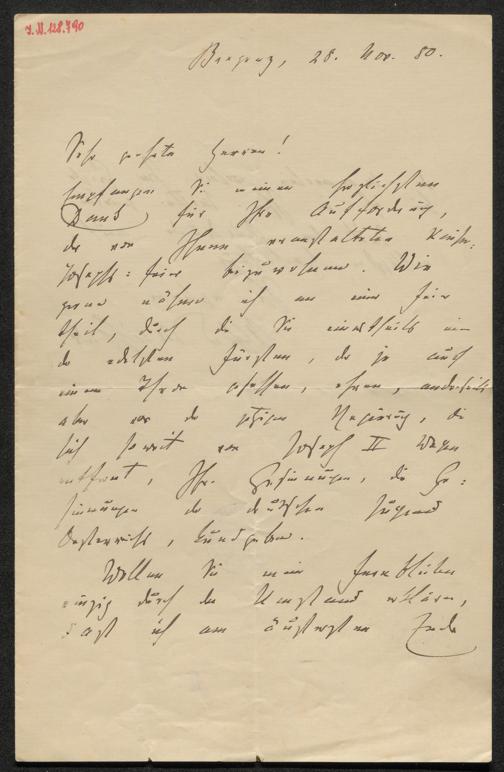 J.N. 128.790
Bregenz, 28. Nov. 80.
Sehr geehrte Herren!
Empfangen Sie meinen herzlichsten
Dank für Ihre Aufforderung,
der von Ihnen veranstalteten Kaiser-
Josephs-feier beizuwohnen. Wie
gerne nähme ich an einer feier
theil, durch die Sie einestheils
der edelsten fürsten, der je auch
einen Thron gesessen, ehren, anderseits
aber vor der jetzigen Regierung, die
sich so weit von Joseph II Wegen
entfernt, Ihre Gesinnungen, die Ge-
sinnungen der deutschen Jugend
Oesterreichs, kundgeben.
Wollen Sie mein fernbleiben
einzig durch den Umstand erklären,
dass ich am äußersten Ende